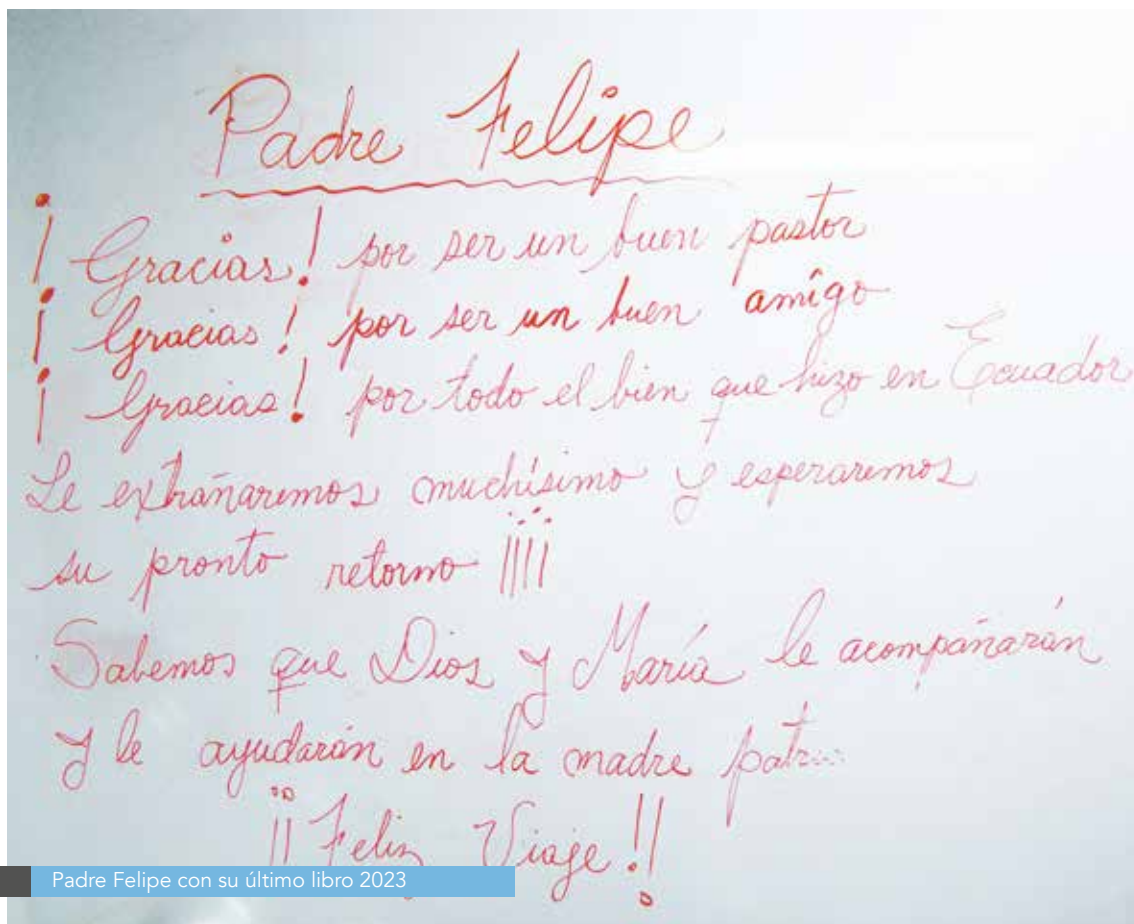 Padre Felipe
¡Gracias! por ser un buen pastor
¡Gracias! por ser un buen amigo
¡Gracias! por todo el bien que hizo en Ecuador
Le extrañaremos muchísimo y esperaremos
su pronto retorno ¡¡¡¡
Sabemos que Dios y María le acompañarán
y le ayudarán en la madre patr...
¡¡Feliz Viaje!!
Padre Felipe con su último libro 2023